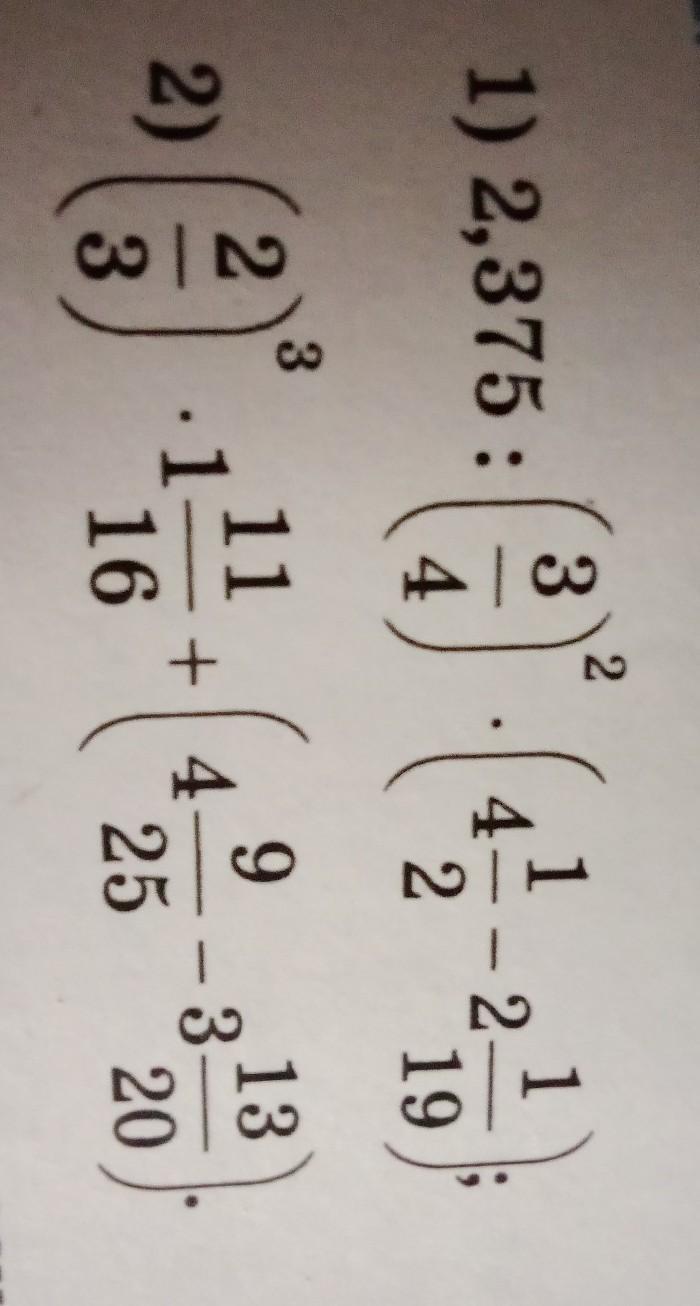 1) 2,375 : (3/4)² · (4 1/2 − 2 1/19);
2) (2/3)³ · 1 11/16 + (4 9/25 − 3 13/20).